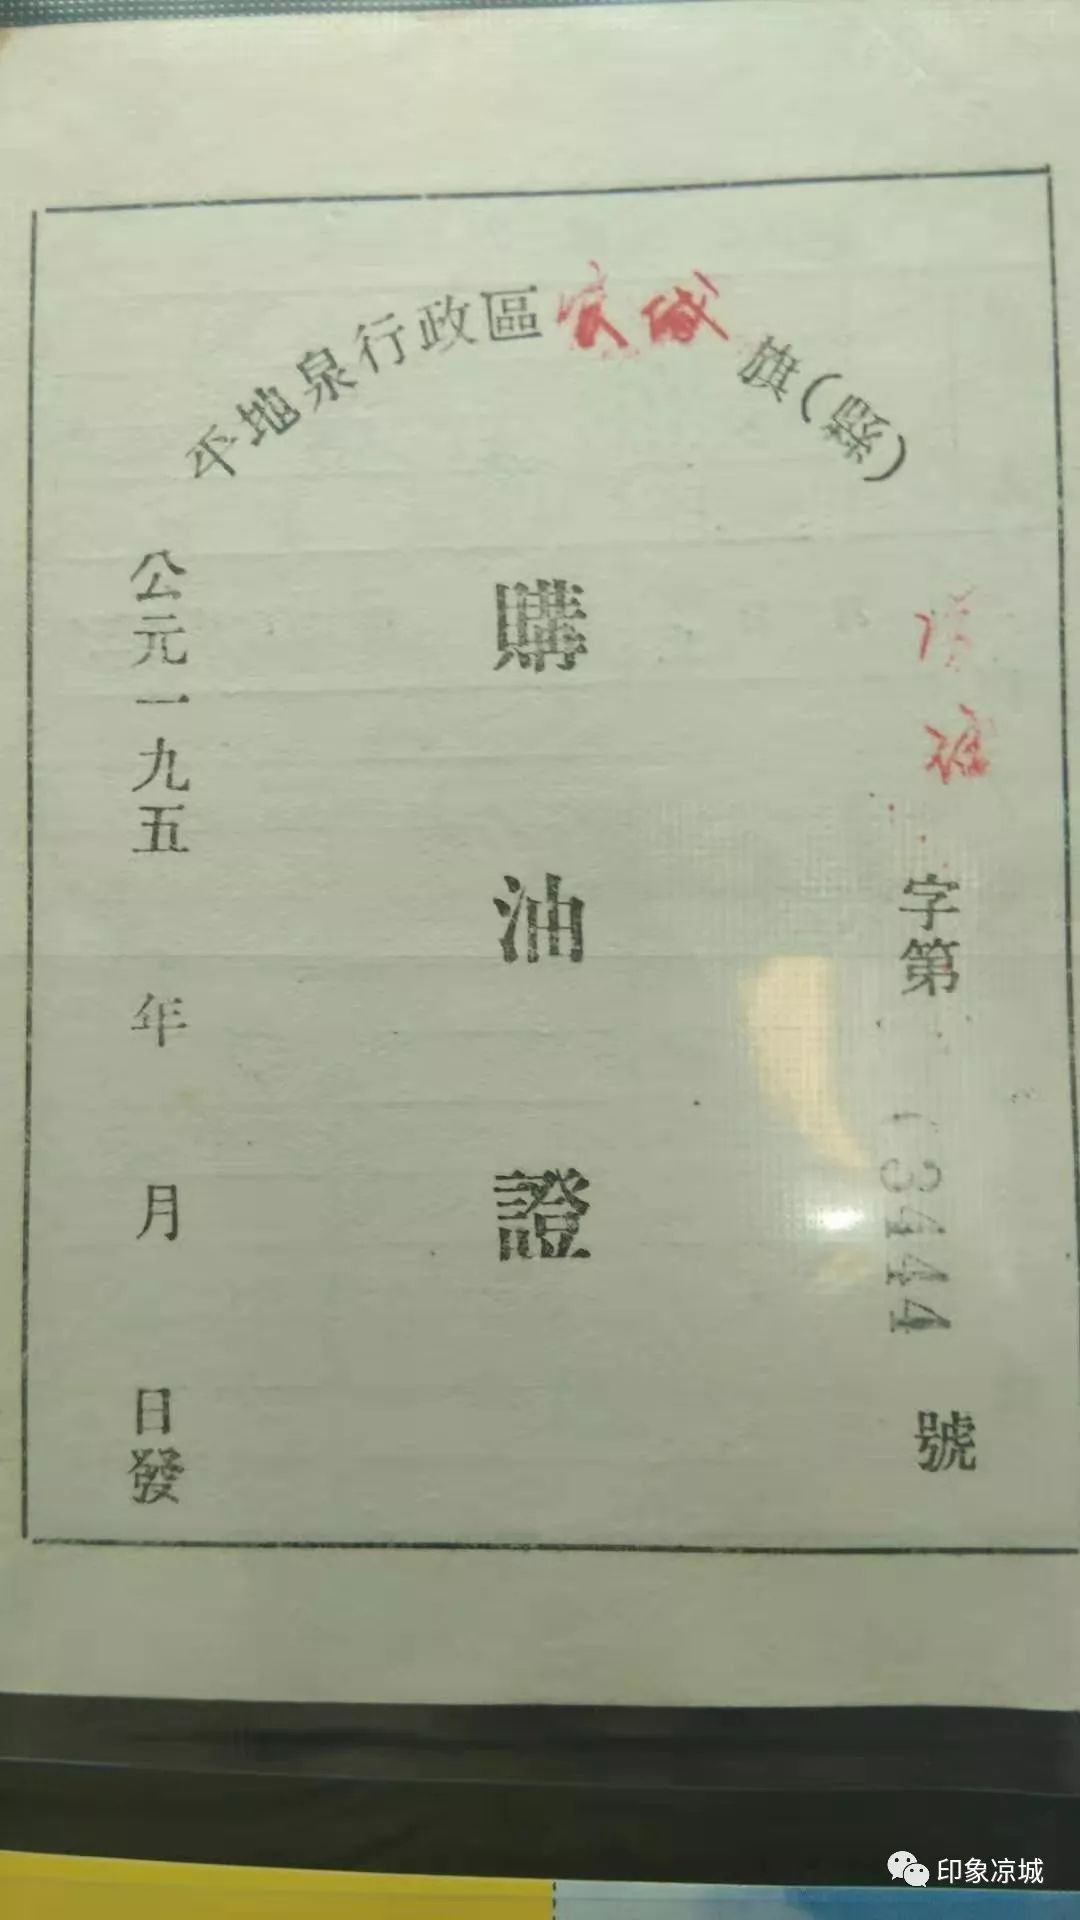 平地泉行政區 旗(縣)
字第 3444 號
購油證
公元一九五 年 月 日發
印象凉城